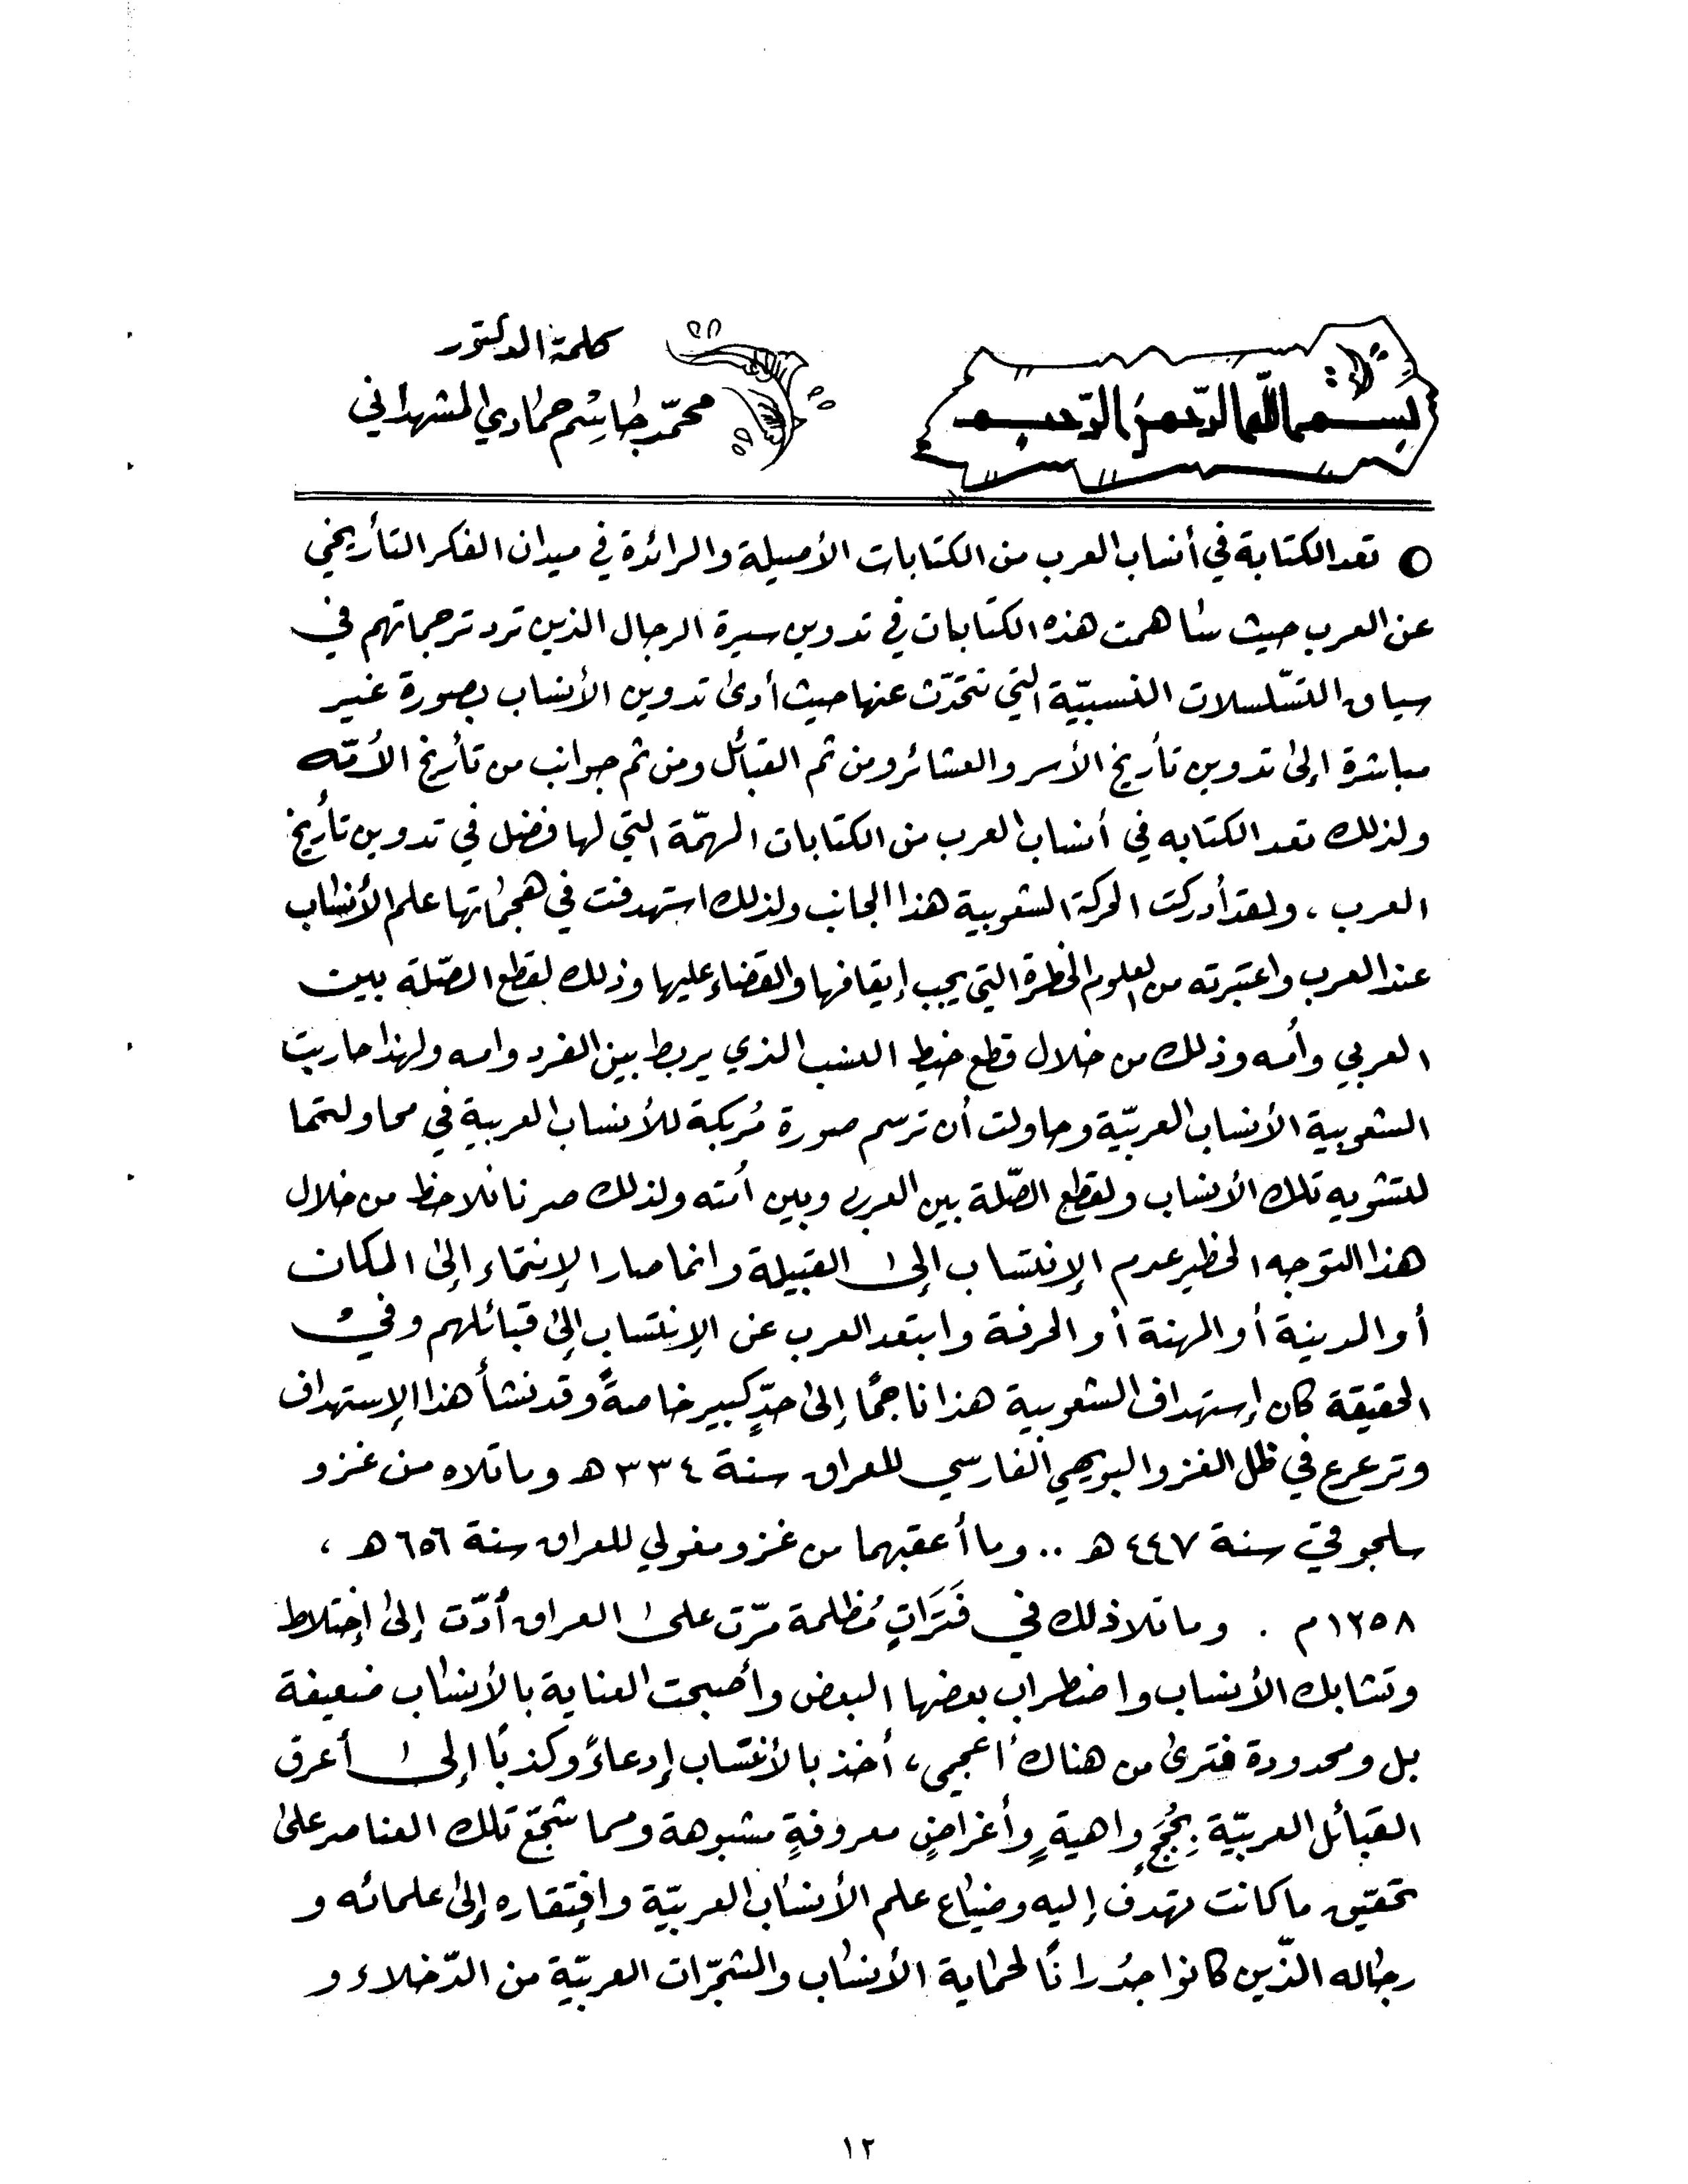 بسم الله الرحمن الرحيم
كلمة الدكتور
محمّد جاسِم حمادي المشهداني
تعد الكتابة في أنساب العرب من الكتابات الأصيلة والرائدة في ميدان الفكر التأريخي
عن العرب حيث ساهمت هذه الكتابات في تدوين سيرة الرجال الذين ترد ترجماتهم في
سياق التسّلسلات النسبيّة التي تتحدّث عنها حيث أدىٰ تدوين الأنساب بصورة غير
مباشرة إلىٰ تدوين تأريخ الأسر والعشائر ومن ثم القبائل ومن ثم جوانب من تأريخ الأمّه
ولذلك تعد الكتابه في أنساب العرب من الكتابات المهمّة التي لها فضل في تدوين تأريخ
العرب ، ولقد أدركت الحركة الشعوبية هذا الجانب ولذلك استهدفت في هجماتها علم الأنساب
عند العرب واعتبرته من العلوم الخطرة التي يجب إيقافها والقضاء عليها وذلك لقطع الصّلة بين
العربي وأمه وذلك من خلال قطع خيط النسب الذي يربط بين الفرد وامه ولهذا حاربت
الشعوبية الأنساب العربيّة وحاولت أن ترسم صورة مُربكة للأنساب العربية في محاولتها
للتشويه تلك الأنساب ولقطع الصّلة بين العرب وبين أمته ولذلك صرنا نلاحظ من خلال
هذا التوجه الخطير عدم الإنتساب إلىٰ القبيلة وانما صار الإنتماء إلىٰ المكان
أو المدينة أو المهنة أو الحرفة وابتعد العرب عن الإنتساب إلىٰ قبائلهم وفي
الحقيقة كان إستهداف الشعوبية هذا ناجحًا إلىٰ حدٍّ كبير خاصةً وقد نشأ هذا الإستهداف
وترعرع في ظل الغزو البويهي الفارسي للعراق سنة ٣٣٤ هـ وما تلاه من غزو
سلجوقي سنة ٤٤٧ هـ .. وما أعقبهما من غزو مغولي للعراق سنة ٦٥٦ هـ ،
١٢٥٨م . وما تلا ذلك في فَتَرَاتٍ مُظلمة مرّت علىٰ العراق أدّت إلىٰ إختلاط
وتشابك الأنساب واضطراب بعضها البعض وأصبحت العناية بالأنساب ضعيفة
بل ومحدودة فترىٰ من هناك أعجمي ، أخذ بالأنتساب إدعاءً وكذبًا إلىٰ أعرق
القبائل العربيّة بِحُجَجٍ واهيةٍ وأغراضٍ معروفةٍ مشبوهة ومما شجّع تلك العناصر علىٰ
تحقيق ما كانت تهدف إليه وضياع علم الأنساب العربيّة وافتقاره إلىٰ علمائه و
رجاله الذّين كانوا جُدرانًا لحماية الأنساب والشجّرات العربيّة من الدّخلاء و
١٢